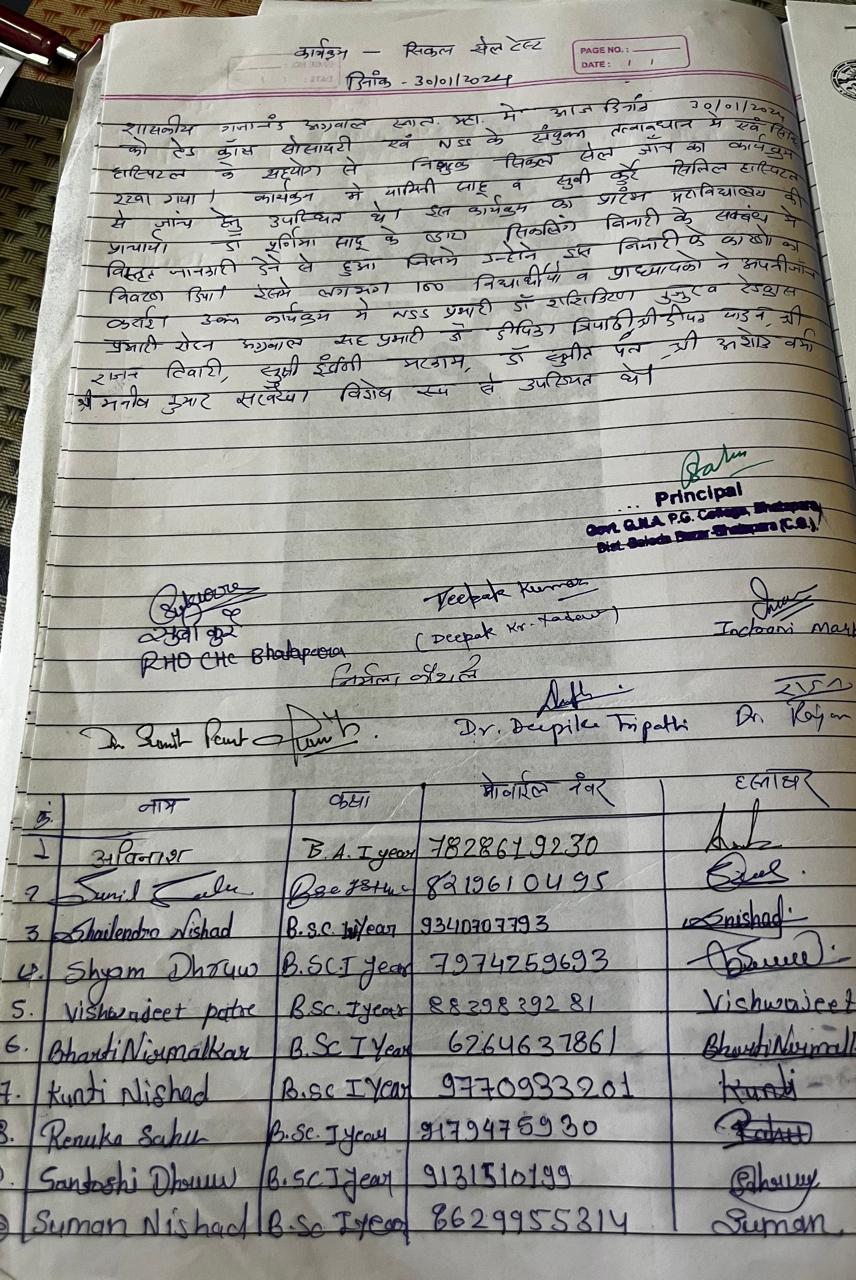 कार्यक्रम - सिकल सेल टेस्ट
PAGE NO. :
DATE : / /
दिनांक - 30/01/2024
शासकीय गजानंद अग्रवाल स्नात. महा. मे आज दिनांक 30/01/2024
को रेड क्रॉस सोसायटी एवं NSS के संयुक्त तत्वाधान मे एवं
हास्पिटल के सहयोग से निशुल्क सिकल सेल जांच का कार्यक्रम
रखा गया। कार्यक्रम मे यामिनी साहू व सुबी कुर्रे सिविल हास्पिटल
से जांच हेतु उपस्थित थे। इस कार्यक्रम का प्रारंभ महाविद्यालय की
प्राचार्या डॉ पूर्णिमा साहू के द्वारा सिकलिंग बिमारी के सम्बंध मे
विस्तृत जानकारी देने से हुआ जिसमे उन्होने इस बिमारी के कारणो का
विवरण दिया। इसमे लगभग 100 विद्यार्थीयो व प्राध्यापको ने अपनी जांच
कराई। उक्त कार्यक्रम मे NSS प्रभारी डॉ शशिकिरण कुजुर व रेडक्रास
प्रभारी रोटन अग्रवाल सह प्रभारी डॉ दीपिका त्रिपाठी, श्री दीपक यादव, श्री
राजन तिवारी, सुश्री इंद्राणी मरकाम, डॉ सुमीत पंत, श्री अशोक वर्मा
श्री मनीष कुमार विशेष रूप से उपस्थित थे।
Sahu
Principal
Govt. G.N.A. P.G. College, Bhatapara
Dist. Baloda Bazar-Bhatapara (C.G.)
Deepak Kumar
सुबी कुर्रे (Deepak Kr. Yadaw) Indrani Mark
RHO CHC Bhatapara
निर्मला कौशले
Dr. Sumit Pant Dr. Deepika Tripathi Dr. Rajan
राजन
क्रं. नाम कक्षा मोबाईल नंबर हस्ताक्षर
1 अविनाश B.A. I year 7828619230
2 Sunil Sahu 8219610495
3 Shailendra Nishad B.S.C. Year 9340707793 Snishad
4. Shyam Dhruw B.SC I year 7974259693
5. Vishwajeet patre B.Sc. I year 8839839281 Vishwajeet
6. Bharti Nirmalkar B.Sc I Year 6264637861 Bharti Nirmalk
7. Kunti Nishad B.sc I Year 9770933201 Kunti
8. Renuka Sahu B.Sc. I year 9179475930
Santoshi Dhruw B.SC I year 9131510199 Sdhruw
Suman Nishad B.Sc I year 8629955314 Suman